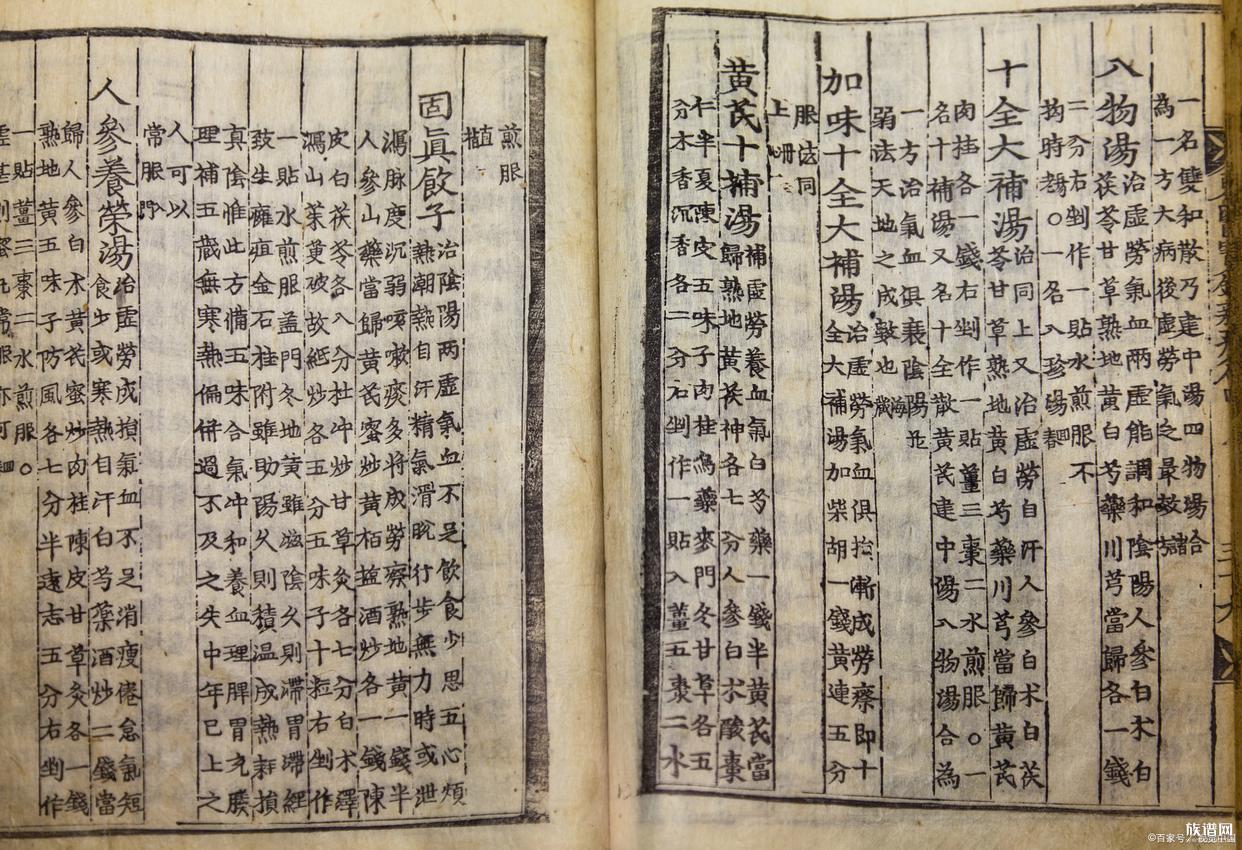 一名雙和散乃建中湯四物湯合
為一方大病後虛勞氣乏最效諸方
八物湯治虛勞氣血兩虛能調和陰陽人參白朮白
茯苓甘草熟地黃白芍藥川芎當歸各一錢
二分右剉作一貼水煎服不
拘時○一名八珍湯回春
十全大補湯治同上又治虛勞自汗人參白朮白茯
苓甘草熟地黃白芍藥川芎當歸黃芪
肉桂各一錢右剉作一貼薑三棗二水煎服○一
名十補湯又名十全散黃芪建中湯八物湯合為
一方治氣血俱衰陰陽並
弱法天地之成數也海藏
加味十全大補湯治虛勞氣血俱損漸成勞瘵即十
全大補湯加柴胡一錢黃連五分
服法同
上
黃芪十補湯補虛勞養血氣白芍藥一錢半黃芪當
歸熟地黃茯神各七分人參白朮酸棗
仁半夏陳皮五味子肉桂烏藥麥門冬甘草各五
分木香沉香各二分右剉作一貼入薑五棗二水
煎服
直指
固眞飮子治陰陽兩虛氣血不足飮食少思五心煩
熱潮熱自汗精氣滑脫行步無力時或泄
瀉脉度沉弱咳嗽痰多將成勞瘵熟地黃一錢半
人參山藥當歸黃芪蜜炒黃栢鹽酒炒各一錢陳
皮白茯苓各八分杜冲炒甘草灸各七分白朮澤
瀉山茱萸破故紙炒各五分五味子十粒右剉作
一貼水煎服盖門冬地黃雖滋陰久則滯胃滯經
致生癰疽金石桂附雖助陽久則積温成熱耗損
真陰惟此方備五味合氣冲和養血理脾胃充腠
理補五藏無寒熱偏併過不及之失中年已上之
人可以
常服入門
人參養榮湯治虛勞成損氣血不足消瘦倦怠氣短
食少或寒熱自汗白芍藥酒炒二錢當
歸人參白朮黃芪蜜炒肉桂陳皮甘草灸各一錢
熟地黃五味子防風各七分半遠志五分右剉作
一貼薑三棗二水煎服○
©百家号
族谱网